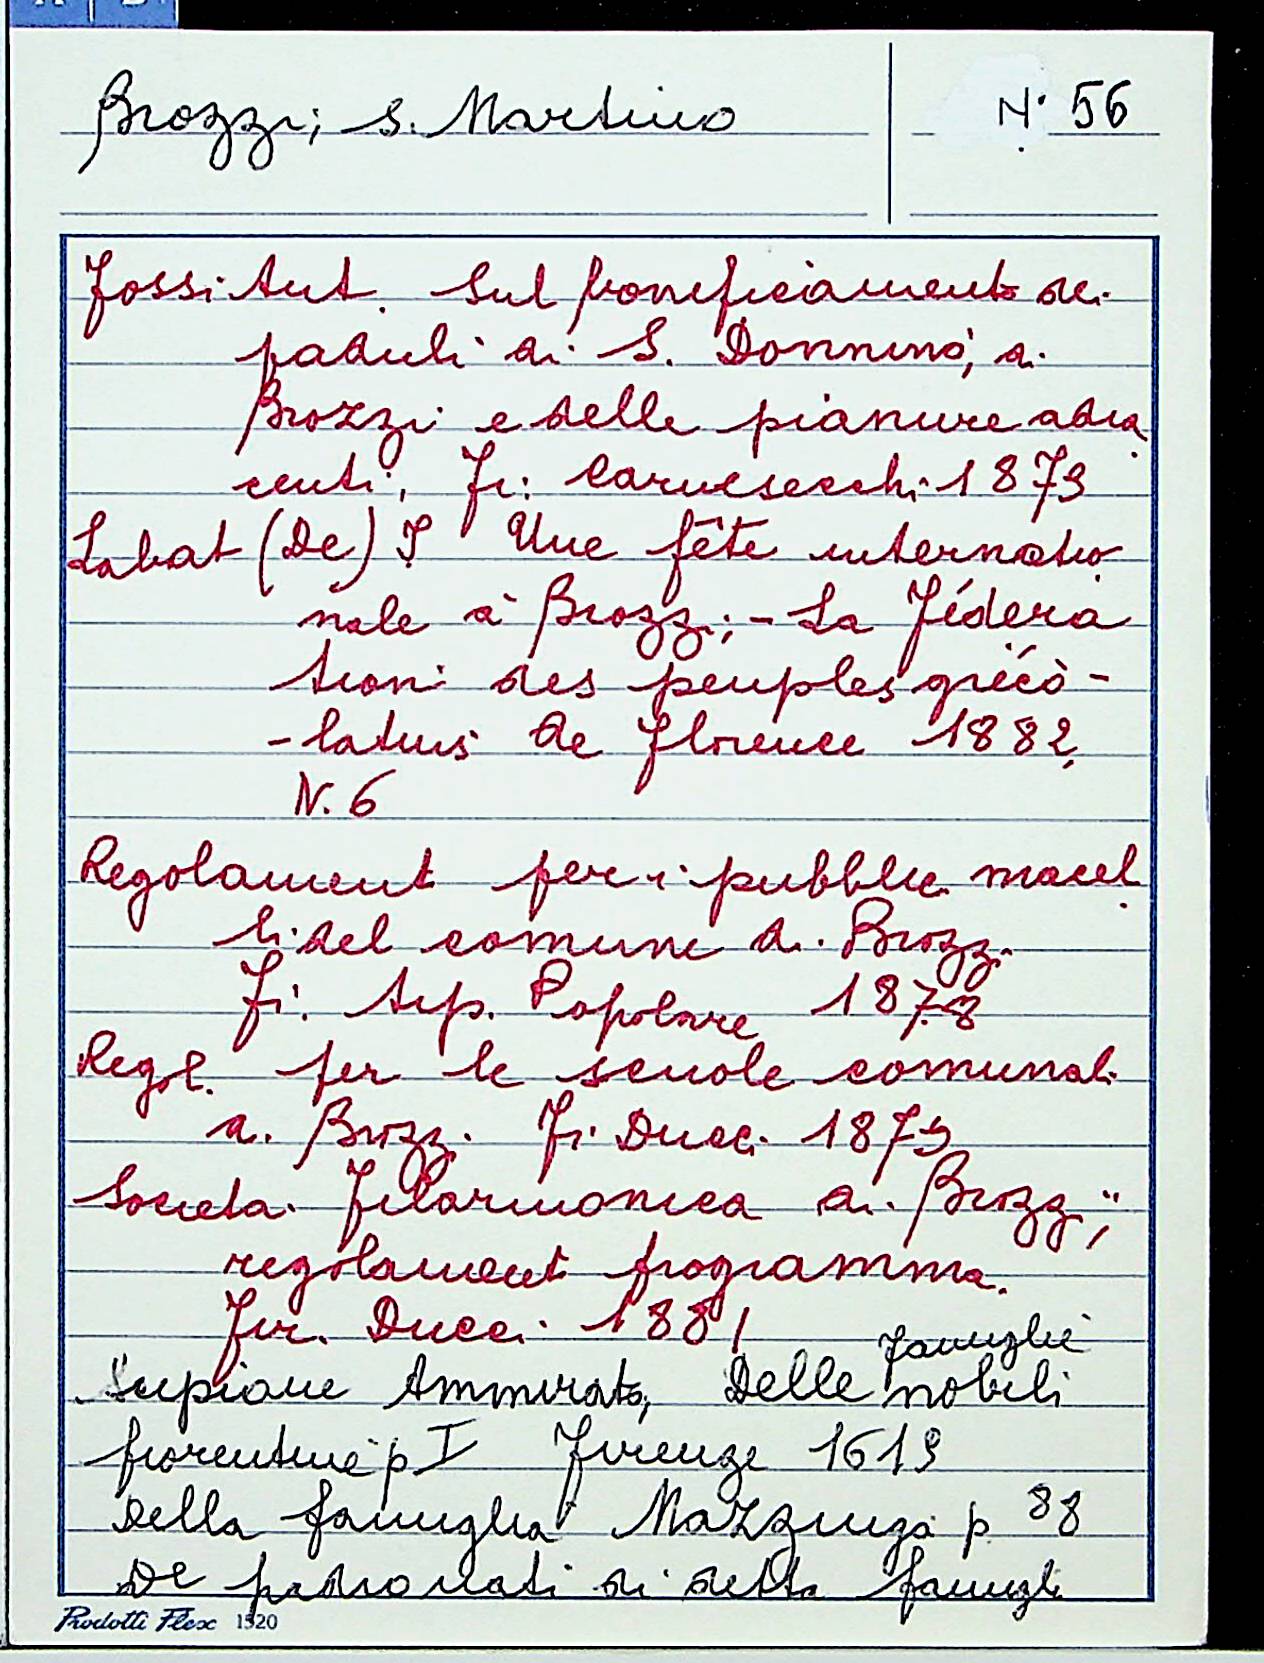 A B
Brozzi; S. Martino
N. 56
Fossi Ant. Sul bonificamento dei
paduli di S. Donnino, di
Brozzi e delle pianure adia
centi. Fi. Carnesecchi 1879
Labat (De) J Une fête internatio
nale à Brozzi; - La Fédera
tion des peuples gréco -
- latins de Florence 1882,
N. 6
Regolament per i pubblic macel
li del comune di Brozzi
Fi. tip. Popolare 1878
Regol. per le scuole comunali
di Brozzi. Fi. Ducci 1879
Societa Filarmonica di Brozzi;
regolament programma.
Fir. Ducci. 1881
famiglie
Scipione Ammirato, Delle nobili
fiorentine p I Firenze 1615
Della famiglia Mazzinga p 88
De padronati di detta famigli
Prodotti Flex 1520